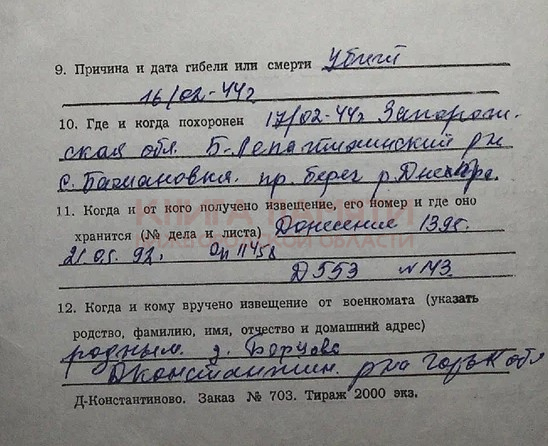 9. Причина и дата гибели или смерти убит
16/02-44г
10. Где и когда похоронен 17/02-44г Запорож-
ская обл. Б-Лепатихинский р-н
с. Бажановка. пр. берег р. Днепра.
11. Когда и от кого получено извещение, его номер и где оно
КНИГА ПАМЯТИ
хранится (№ дела и листа) Донесение
НИЖЕГОРОДСКОЙ ОБЛАСТИ
21.05.92. Оп 11458
Д 553 №143.
12. Когда и кому вручено извещение от военкомата (указать
родство, фамилию, имя, отчество и домашний адрес)
родным д. Борцово
Дконстантин. р-на Горьк обл
Д-Константиново. Заказ № 703. Тираж 2000 экз.